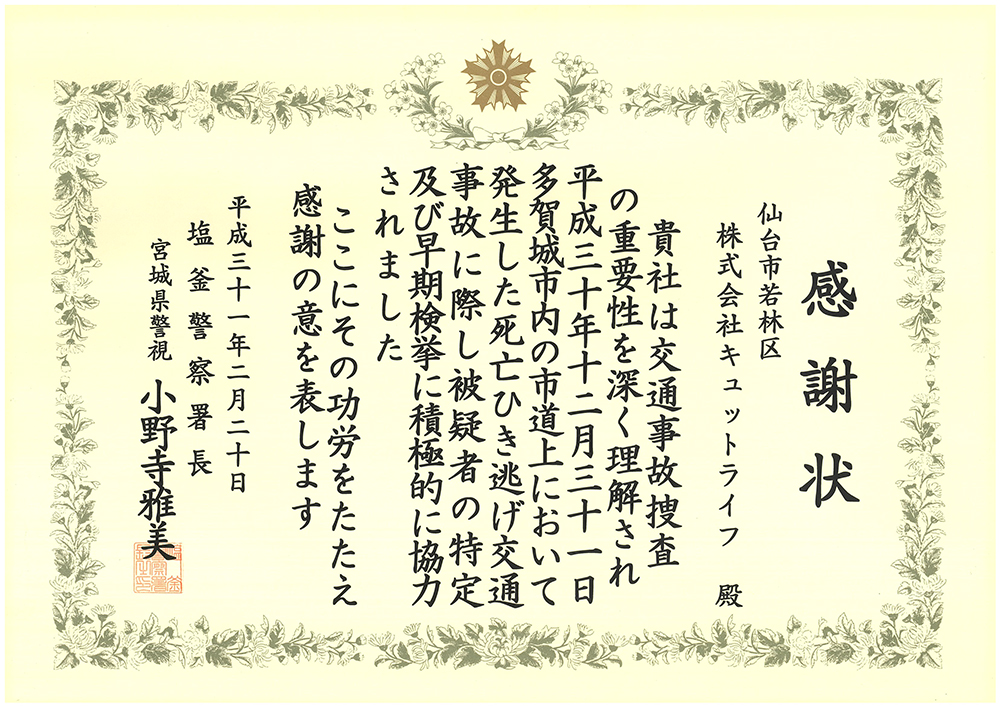 感謝状
仙台市若林区
株式会社キュットライフ 殿
貴社は交通事故捜査
の重要性を深く理解され
平成三十年十二月三十一日
多賀城市内の市道上において
発生した死亡ひき逃げ交通
事故に際し被疑者の特定
及び早期検挙に積極的に協力
されました
ここにその功労をたたえ
感謝の意を表します
平成三十一年二月二十日
塩釜警察署長
宮城県警視 小野寺雅美